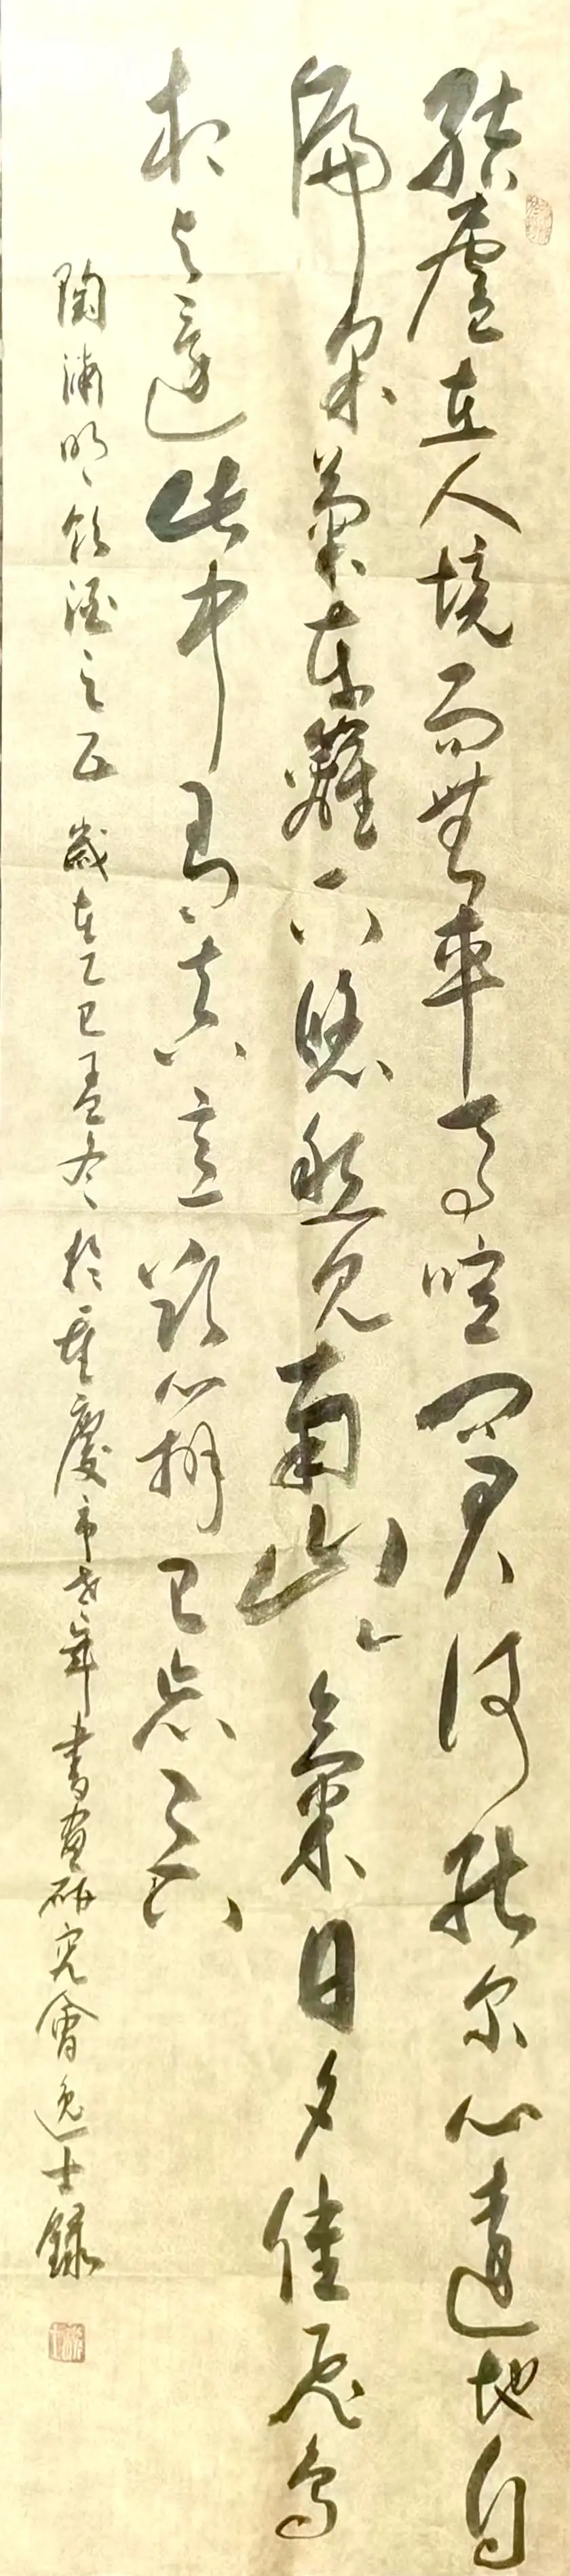 結廬在人境而無車馬喧問君何能尔心遠地自
偏采菊東籬下悠然見南山々氣日夕佳飛鳥
相与還此中有真意欲辨已忘言
陶淵明飲酒之五歲在乙巳孟冬於重慶市老年書畫研究會逸士錄